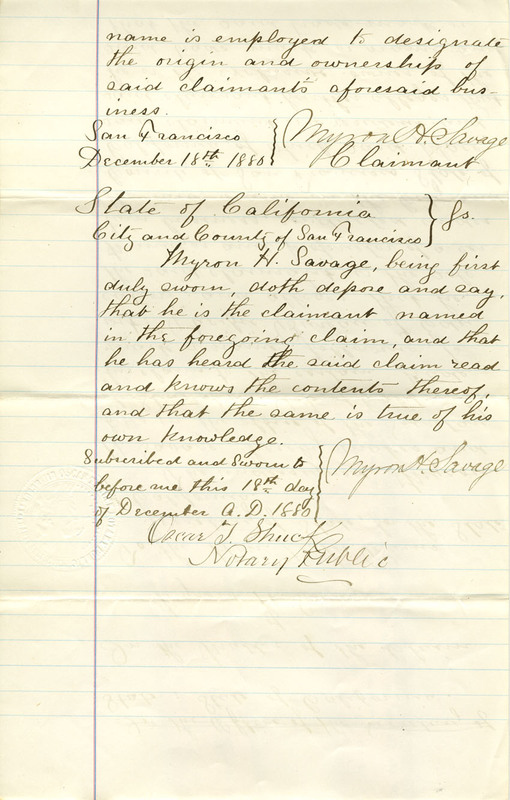 name is employed to designate
the origin and ownership of
said claimant's aforesaid bus-
iness.
San Francisco
December 18th 1880
Myron H. Savage
Claimant
State of California
City and County of San Francisco } Ss.
Myron H. Savage, being first
duly sworn, doth depose and say,
that he is the claimant named
in the foregoing claim, and that
he has heard the said claim read
and knows the contents thereof,
and that the same is true of his
own knowledge.
Subscribed and Sworn to
before me this 18th day
of December A.D. 1880
Myron H. Savage
Oscar T. Shuck
Notary Public